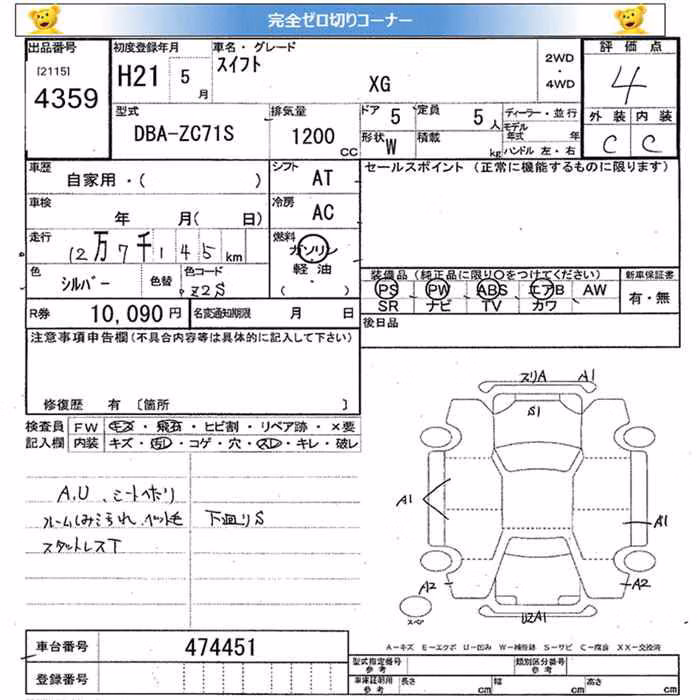 完全ゼロ切りコーナー
出品番号 初度登録年月 車名・グレード 評価点
[2115] 4359 H21 5月 スイフト XG 2WD・4WD 4
外装 内装
C C
型式 排気量 ドア 5 定員 5人 ディーラー・並行
DBA-ZC71S 1200CC モデル年式 年
形状 W 積載 kg ハンドル 左・右
車歴 シフト セールスポイント (正常に機能するものに限ります)
自家用・( ) AT
車検 冷房
年 月( 日) AC
走行 燃料
12万7千145km ガソリン
軽油
( )
色 色替 色コード
シルバー Z2S
装備品 (純正品に限り○をつけてください) 新車保証書
PS PW ABS エアB AW 有・無
SR ナビ TV カワ
R券 10,090円 名変通知期限 月 日
後日品
注意事項申告欄 (不具合内容等は具体的に記入して下さい)
修復歴 有 [箇所 ]
検査員 FW キズ・飛石・ヒビ割・リペア跡・×要
記入欄 内装 キズ・汚・コゲ・穴・スレ・キレ・破レ
A,U、シートヘタリ
ルームしみ汚れ、ペット毛 下廻りS
スタットレスT
スリA A1
S1
A1 A1
A2 A2
スペア
U2A1
A-キズ E-エクボ U-凹み W-補修跡 S-サビ C-腐食 XX-交換済
車台番号 474451
登録番号
型式指定番号 参考 類別区分番号 参考
車庫証明用 参考 長さ cm 幅 cm 高さ cm